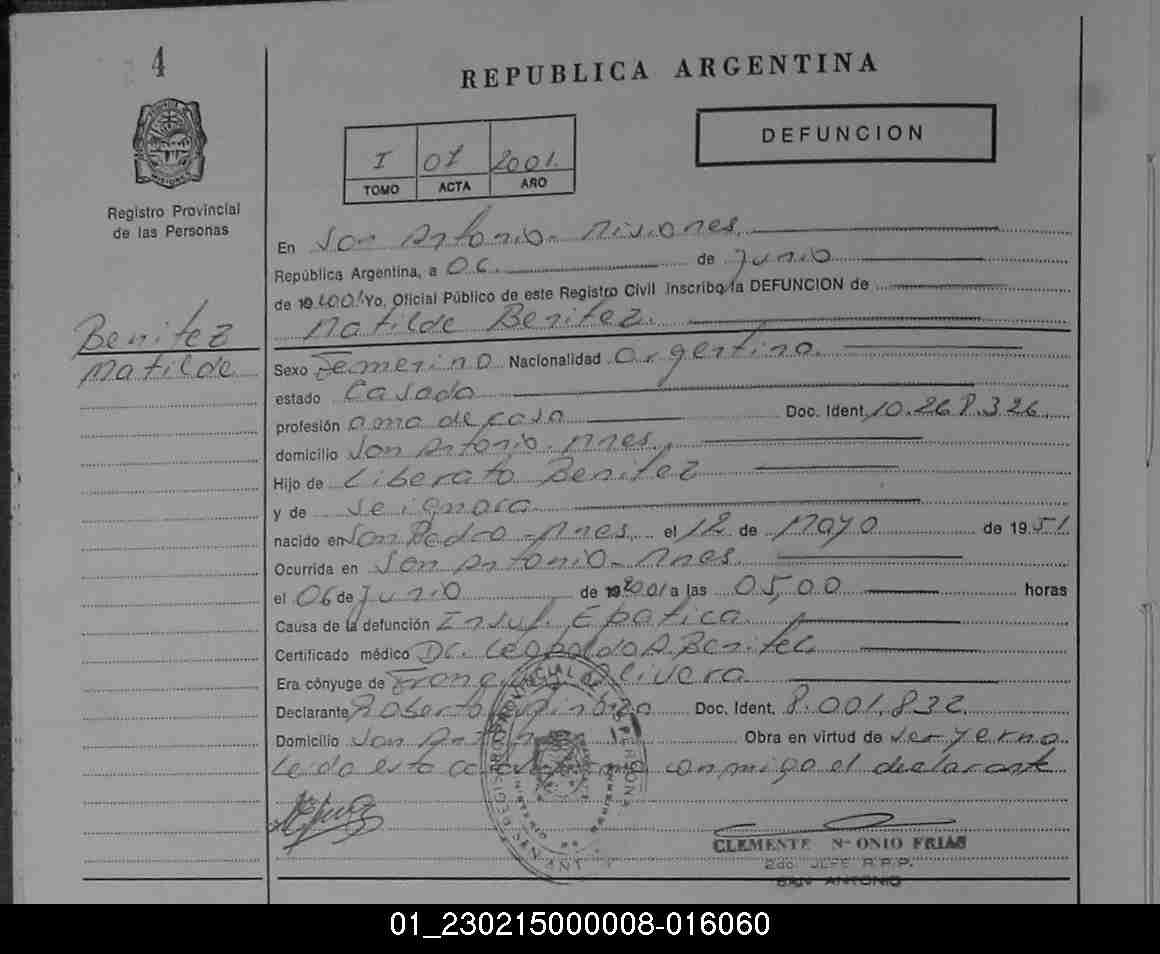 4
REPUBLICA ARGENTINA
DEFUNCION
I 07 2001.
TOMO ACTA AÑO
MISIONES
Registro Provincial
de las Personas
En San Antonio - Misiones.
República Argentina, a 06. de junio
de 19 2001 Yo, Oficial Público de este Registro Civil inscribo la DEFUNCION de
Matilde Benitez.
Benitez
Matilde
Sexo Femenino Nacionalidad Argentina.
estado Casada
profesión ama de casa Doc. Ident. 10.268.326
domicilio San Antonio - Mnes.
Hijo de Liberato Benitez
y de se ignora
nacido en San Pedro - Mnes. el 12 de Mayo de 1951
Ocurrida en San Antonio - Mnes.
el 06 de junio de 19 2001 a las 05,00 horas
Causa de la defunción Insuf. Epatica.
Certificado médico Dr. Leopoldo A. Benitez
Era cónyuge de Olivera
Declarante Roberto Doc. Ident. 8.001.832
Domicilio San Obra en virtud de ser yerno.
Leida esta conmigo el declarante
CLEMENTE ONIO FRIAS
2do. JEFE R.P.P.
SAN ANTONIO
01_230215000008-016060